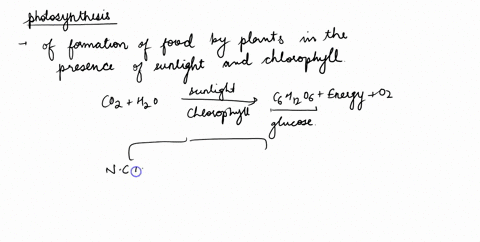 photosynthesis
→ of formation of food by plants in the
presence of sunlight and chlorophyll.
CO2 + H2O sunlight chlorophyll → C6H12O6 + Energy + O2
glucose.
N.C